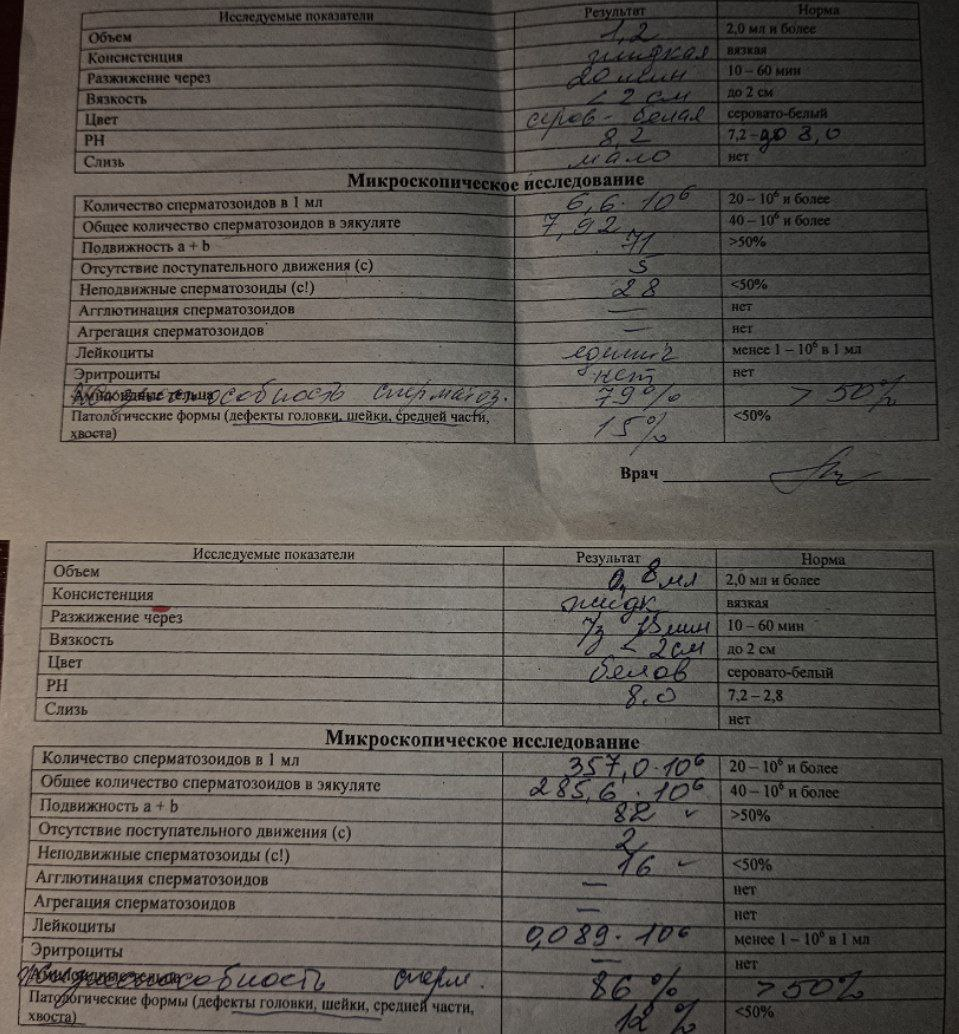 Исследуемые показатели Результат Норма
Объем 1,2 2,0 мл и более
Консистенция жидкая вязкая
Разжижение через 20 мин 10 – 60 мин
Вязкость < 2 см до 2 см
Цвет серов - белая серовато-белый
РН 8,2 7,2 – до 8,0
Слизь мало нет
Микроскопическое исследование
Количество сперматозоидов в 1 мл 6,6 · 10⁶ 20 – 10⁶ и более
Общее количество сперматозоидов в эякуляте 7,92 40 – 10⁶ и более
Подвижность a + b 71 >50%
Отсутствие поступательного движения (с) 5
Неподвижные сперматозоиды (с!) 28 <50%
Агглютинация сперматозоидов — нет
Агрегация сперматозоидов — нет
Лейкоциты единич менее 1 – 10⁶ в 1 мл
Эритроциты нет нет
Амилоидные тельца Жизнеспособность сперматоз. 79% > 50%
Патологические формы (дефекты головки, шейки, средней части, 15% <50%
хвоста)
Врач
Исследуемые показатели Результат Норма
Объем 0,8 мл 2,0 мл и более
Консистенция жидк вязкая
Разжижение через 15 мин 10 – 60 мин
Вязкость < 2 см до 2 см
Цвет белов серовато-белый
РН 8.0 7,2 – 2,8
Слизь нет
Микроскопическое исследование
Количество сперматозоидов в 1 мл 357,0 · 10⁶ 20 – 10⁶ и более
Общее количество сперматозоидов в эякуляте 285,6 · 10⁶ 40 – 10⁶ и более
Подвижность a + b 82 >50%
Отсутствие поступательного движения (с) 2
Неподвижные сперматозоиды (с!) 16 <50%
Агглютинация сперматозоидов — нет
Агрегация сперматозоидов — нет
Лейкоциты 0,089 · 10⁶ менее 1 – 10⁶ в 1 мл
Эритроциты — нет
Амилоидные тельца Жизнеспособность сперм. 86 % > 50%
Патологические формы (дефекты головки, шейки, средней части, 12 % <50%
хвоста)